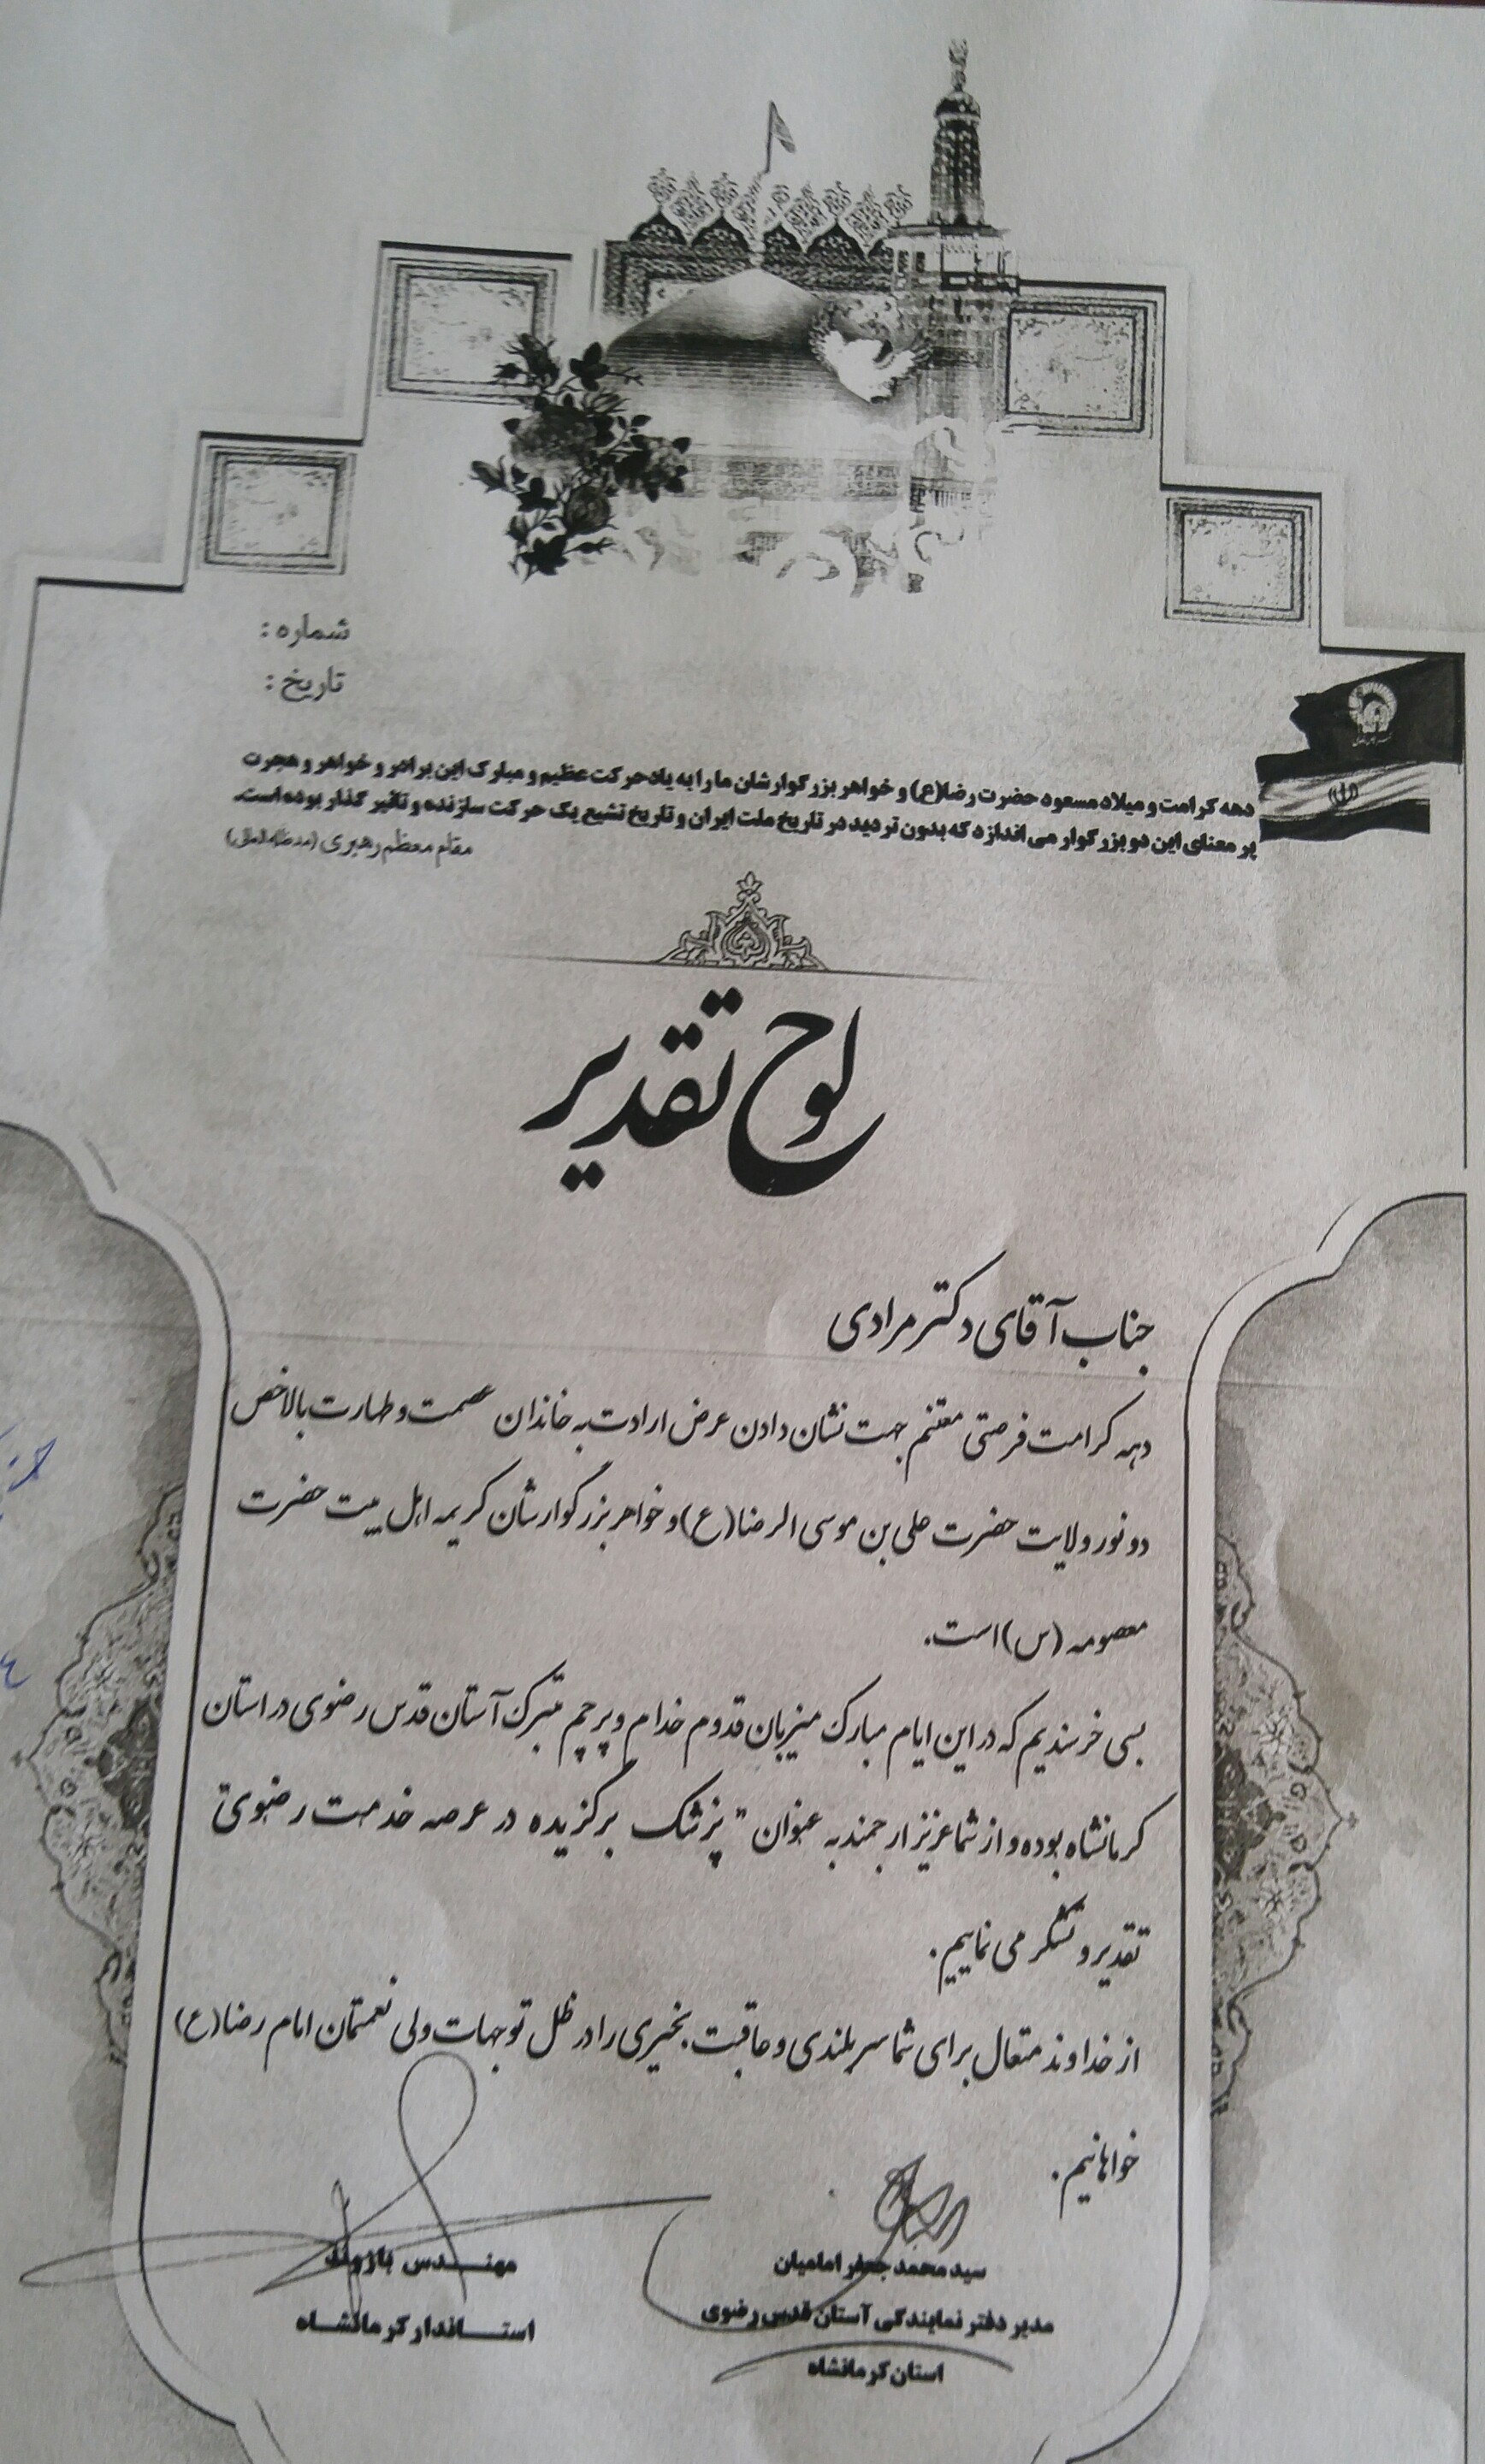 شماره :
تاریخ :
دهه کرامت و میلاد مسعود حضرت رضا(ع) و خواهر بزرگوارشان ما را به یاد حرکت عظیم و مبارک این برادر و خواهر و هجرت
پر معنای این دو بزرگوار می اندازد که بدون تردید در تاریخ ملت ایران و تاریخ تشیع یک حرکت سازنده و تاثیر گذار بوده است.
مقام معظم رهبری (مدظله العالی)
لوح تقدیر
جناب آقای دکتر مرادی
دهه کرامت فرصتی مغتنم جهت نشان دادن عرض ارادت به خاندان عصمت و طهارت بالاخص
دو نور ولایت حضرت علی بن موسی الرضا (ع) و خواهر بزرگوارشان کریمه اهل بیت حضرت
معصومه (س) است.
بسی خرسندیم که در این ایام مبارک میزبان قدوم خدام و پرچم متبرک آستان قدس رضوی در استان
کرمانشاه بوده و از شما عزیز ارجمند به عنوان " پزشک برگزیده در عرصه خدمت رضوی"
تقدیر و تشکر می نماییم.
از خداوند متعال برای شما سربلندی و عاقبت بخیری را در ظل توجهات ولی نعمتمان امام رضا (ع)
خواهانیم.
سید محمد جعفر امامیان
مدیر دفتر نمایندگی آستان قدس رضوی
استان کرمانشاه
مهندس بازوند
استاندار کرمانشاه